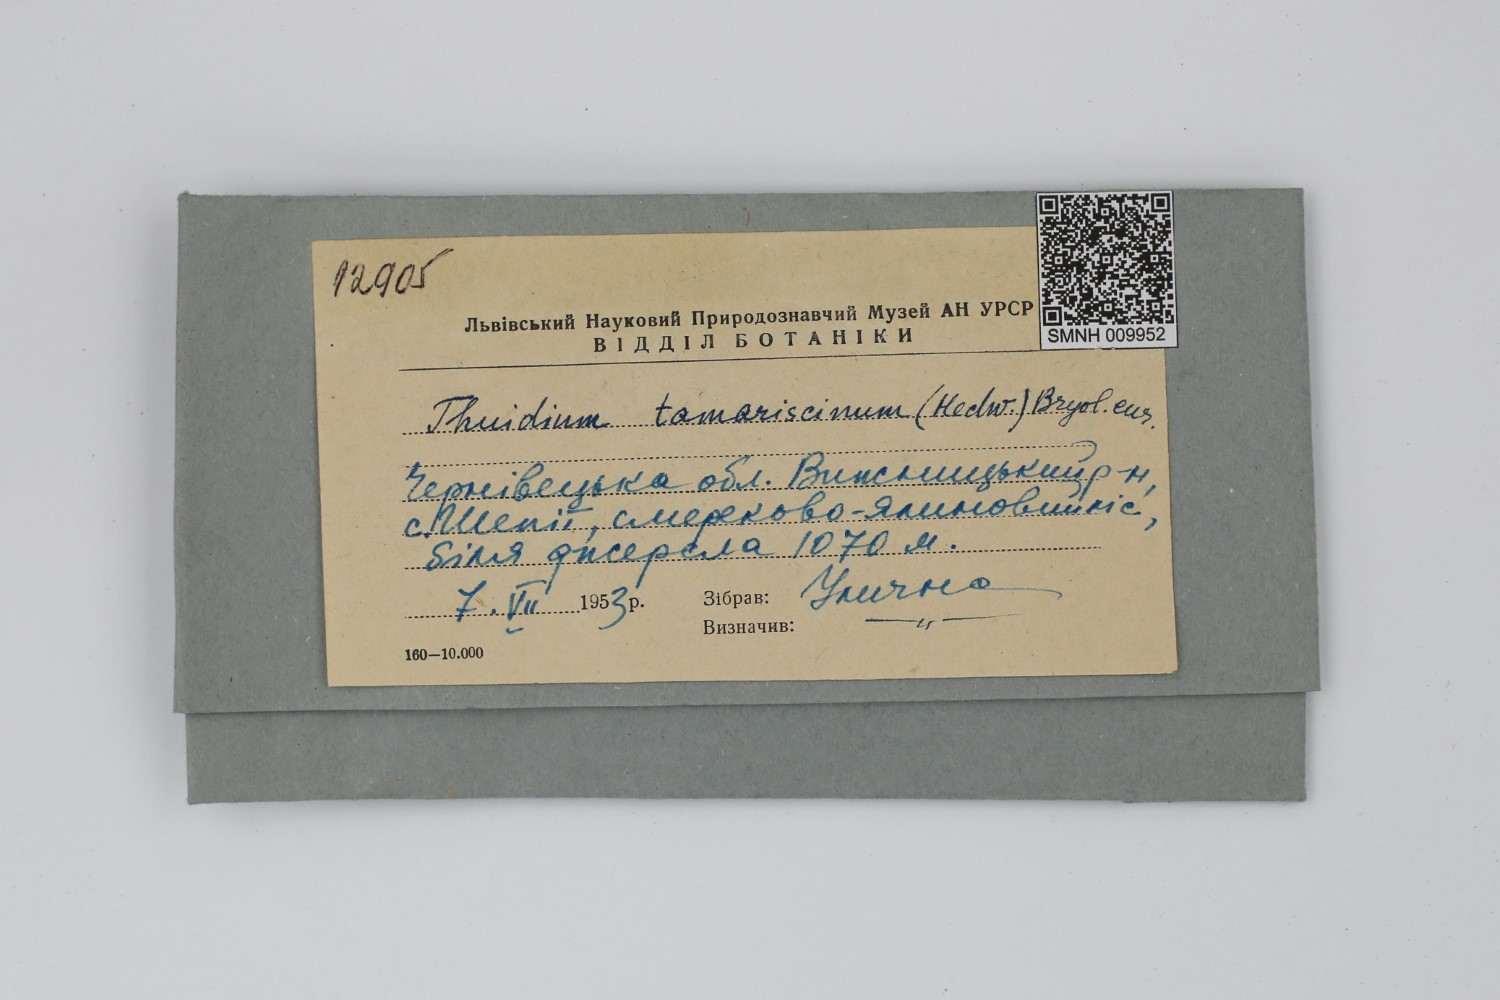 12905
Львівський Науковий Природознавчий Музей АН УРСР
ВІДДІЛ БОТАНІКИ
SMNH 009952
Thuidium tamariscinum (Hedw.) Bryol. eur.
Чернівецька обл. Вижницький р-н,
с. Шепіт, смереково-ялиновий ліс,
біля джерела 1070 м.
7. VII 1953 р. Зібрав: Улична
Визначив: —〃—
160—10.000